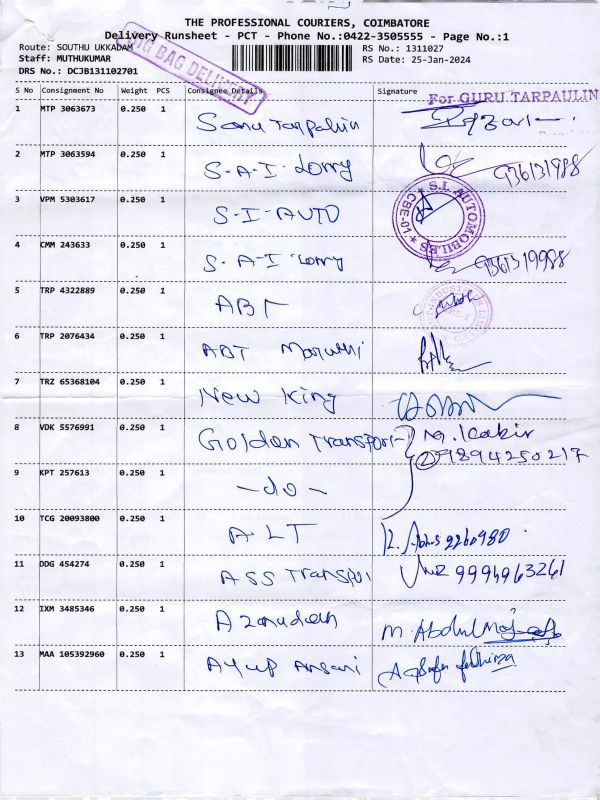 THE PROFESSIONAL COURIERS, COIMBATORE
Delivery Runsheet - PCT - Phone No.:0422-3505555 - Page No.:1
Route: SOUTHU UKKADAM
RS No.: 1311027
Staff: MUTHUKUMAR
RS Date: 25-Jan-2024
DRS No.: DCJB131102701
BAG DELIVERY
S No Consignment No Weight PCS Consignee Details Signature
For GURU TARPAULIN
1 MTP 3063673 0.250 1 Sonu Tarpaulin
2 MTP 3063594 0.250 1 S-A-I Lorry
3 VPM 5303617 0.250 1 S-I-AUTO
S.I. AUTOMOBILES CBE-01
4 CMM 243633 0.250 1 S-A-I Lorry 9361319988
5 TRP 4322889 0.250 1 ABT
6 TRP 2076434 0.250 1 ABT Maruthi
7 TRZ 65368104 0.250 1 New King
8 VDK 5576991 0.250 1 Golden Transport M. Kabir
9894250217
9 KPT 257613 0.250 1 -do-
10 TCG 20093800 0.250 1 ALT
11 DDG 454274 0.250 1 ASS Transpor 9994963261
12 IXM 3485346 0.250 1 M Abdul
13 MAA 105392960 0.250 1 Ayup Ansari